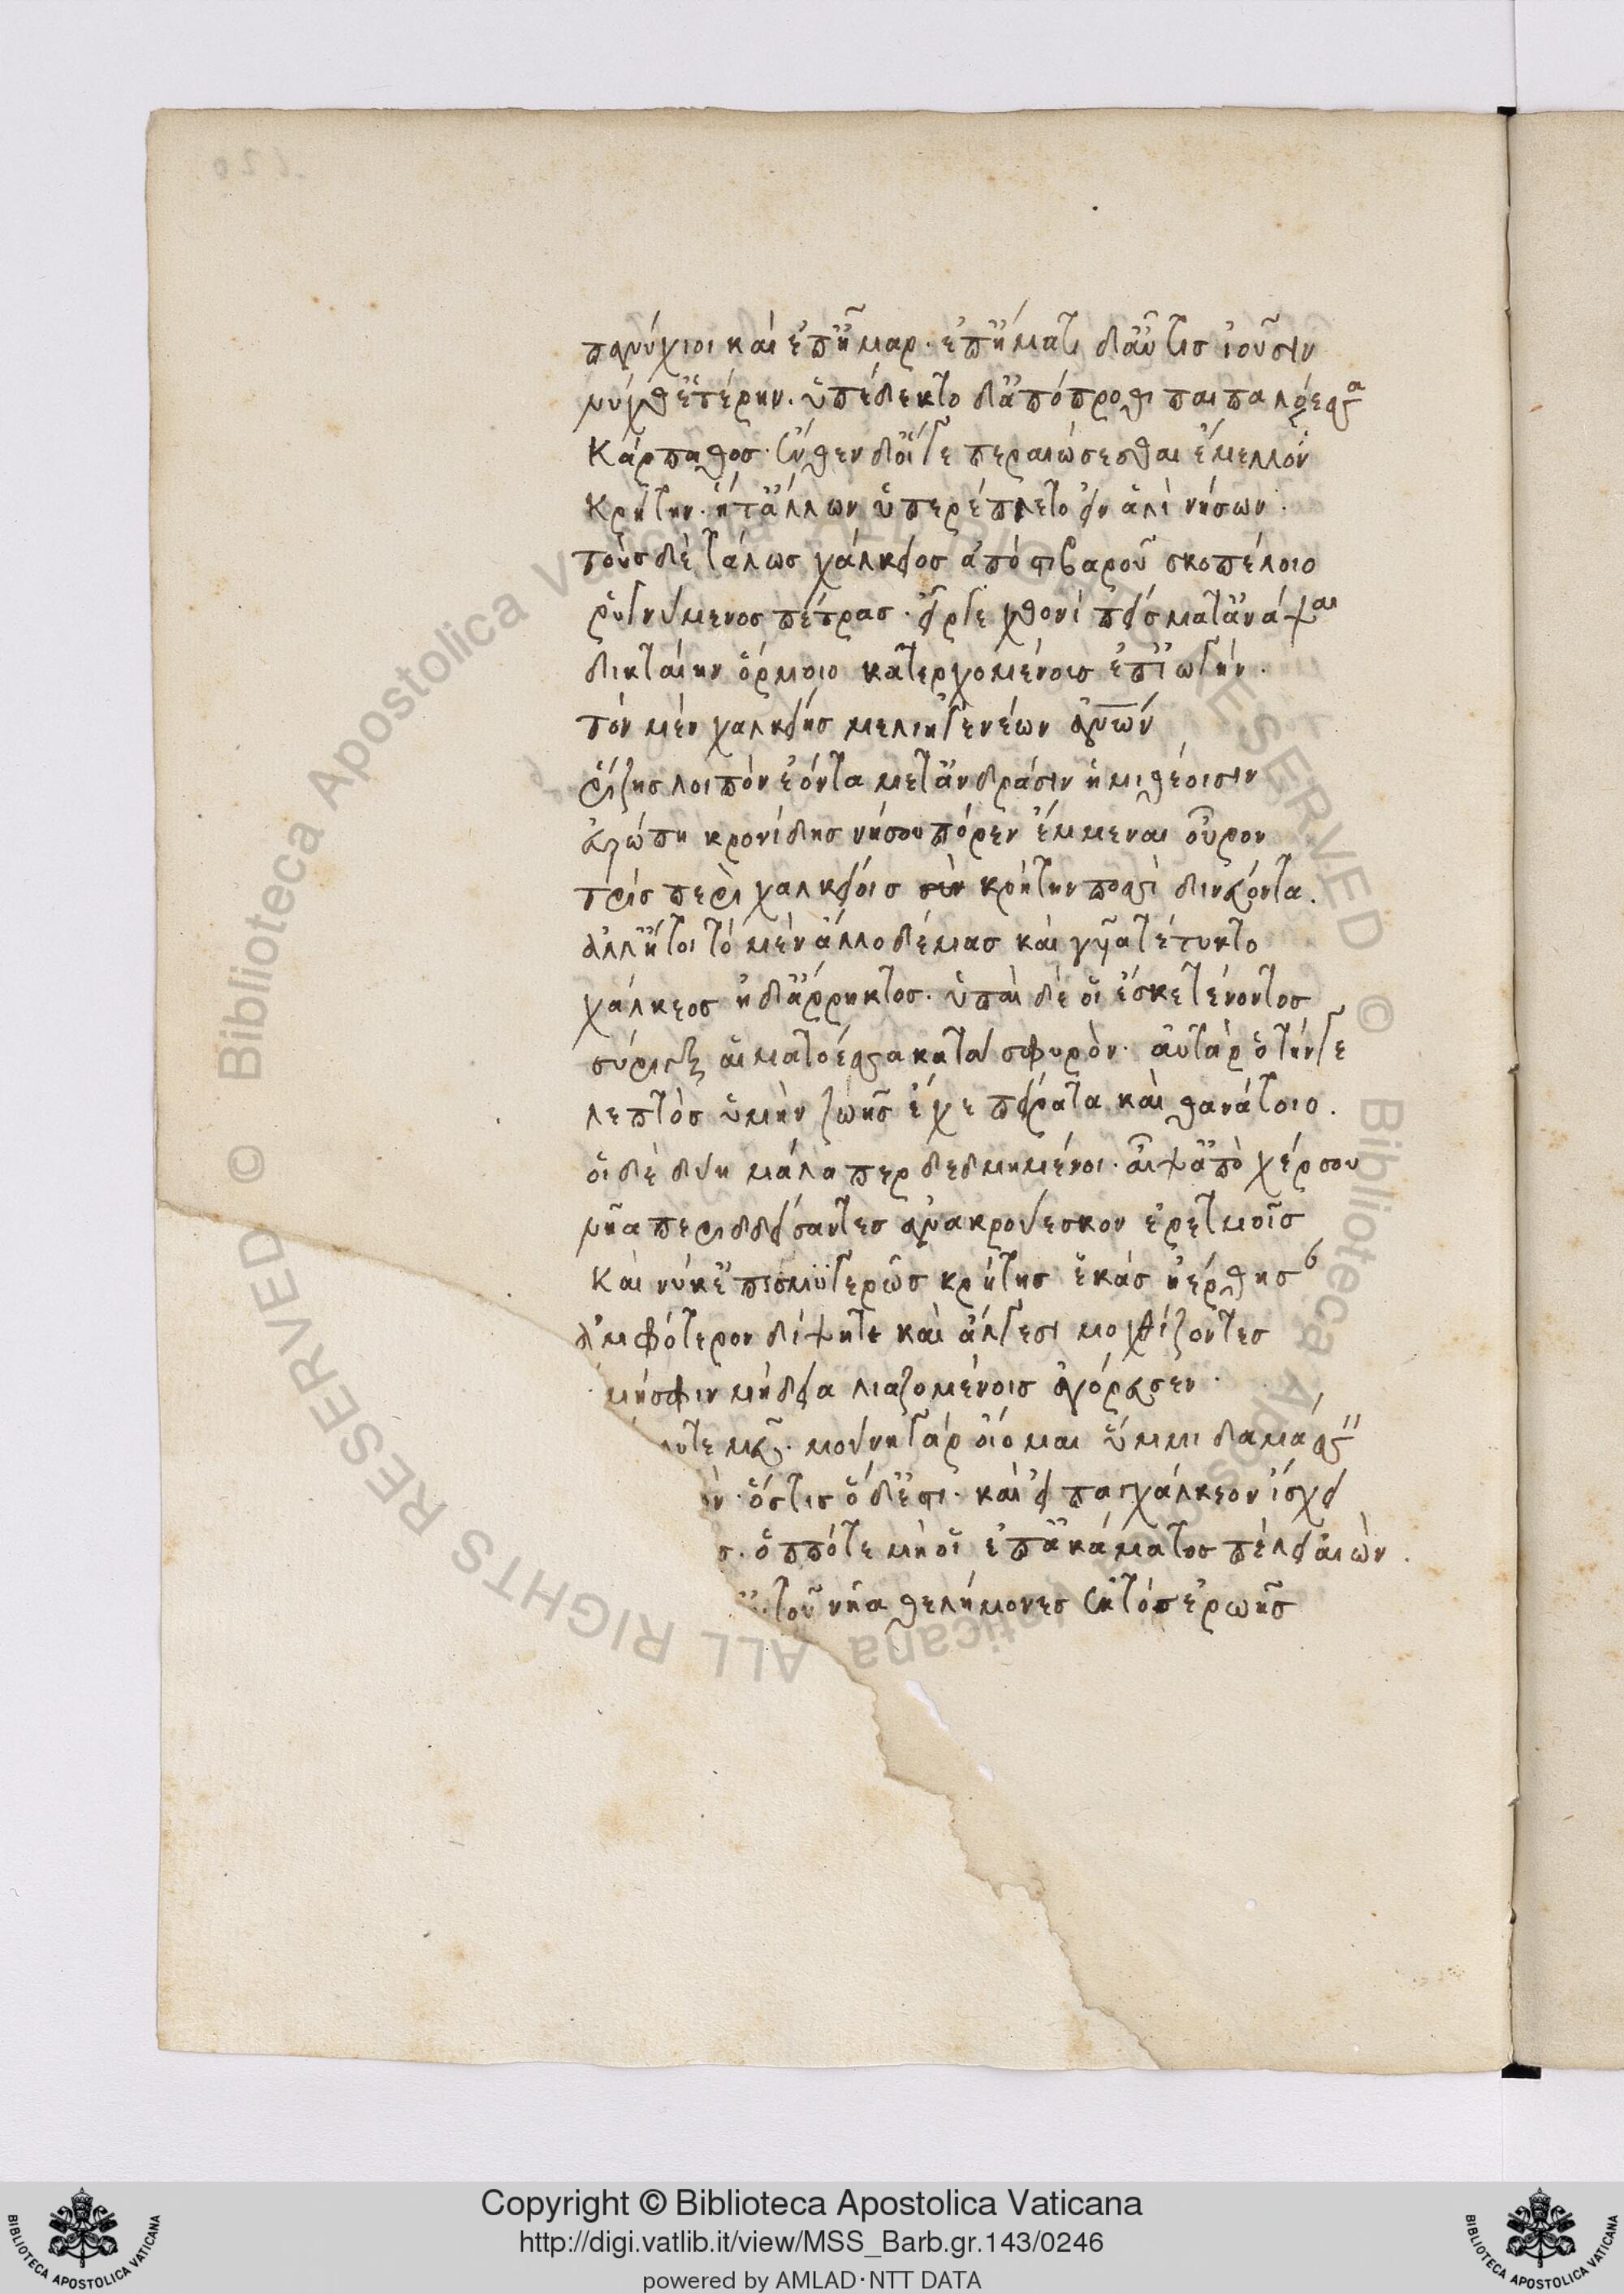 παννύχιοι καὶ ἐπ' ἦμαρ. ἐπ' ἤματι δ' αὖτις ἰοῦσιν
νύχθ' ἑτέρην. ὑπέδεκτο δ' ἀπόπροθι παιπαλόεσσα
Κάρπαθος. ἔνθεν δ' οἵγε περαιώσεσθαι ἔμελλον
Κρήτην. ἥτ' ἄλλων ὑπερέπλετο εἰν ἁλὶ νήσων.
τοὺς δὲ τάλως χάλκειος ἀπὸ στιβαροῦ σκοπέλοιο
ῥυγνύμενος πέτρας. εἶργε χθονὶ πείσματ' ἀνάψαι
δικταίην ὅρμοιο κατερχομένοις ἐπιωγήν.
τὸν μὲν χαλκείης μελιηγενέων ἀνων
ῥίζης λοιπὸν ἐόντα μετ' ἀνδράσιν ἡμιθέοισιν
κρονίδης νήσου πόρεν ἔμμεναι οὖρον
τρὶς περὶ χαλκείοις κρήτην ποσσὶ δινεύοντα.
ἀλλ' ἤτοι τὸ μὲν ἄλλο δέμας καὶ γυῖα τέτυκτο
χάλκεος ἠδ' ἄρρηκτος. ὑπαὶ δέ οἱ ἔσκε τένοντος
σύριγξ αἱματόεσσα κατὰ σφυρόν. αὐτὰρ ὁ τήνγε
λεπτὸς ὑμὴν ζωῆς ἔχε πείρατα καὶ θανάτοιο.
οἱ δὲ δύη μάλα περ δεδμημένοι. αἶψ' ἀπὸ χέρσου
νῆα περιδδείσαντες ἀνακρούεσκον ἐρετμοῖς
Καὶ νύ κ' ἐπισμυγερῶς κρήτης ἑκὰς ἠέρθησ
ἀμφότερον δίψητε καὶ ἄλγεσι μοχθίζοντες
μήσφιν μήδεια λιαζομένοις ἀγόρευσεν.
υτε μευ. μούνη γὰρ ὀίομαι ὔμμι δαμάσσ
ν. ὅστις ὅδ' ἐστι. καὶ εἰ παγχάλκεον ἴσχει
σ. ὁππότε μή οἱ ἐπ' ἀκάματος πέλει αἰών.
τοῦ νῆα θελήμονες ἐκτὸς ἐρωῆς
Copyright © Biblioteca Apostolica Vaticana
http://digi.vatlib.it/view/MSS_Barb.gr.143/0246
powered by AMLAD·NTT DATA
BIBLIOTECA APOSTOLICA VATICANA
BIBLIOTECA APOSTOLICA VATICANA
© Biblioteca Apostolica Vaticana ALL RIGHTS RESERVED